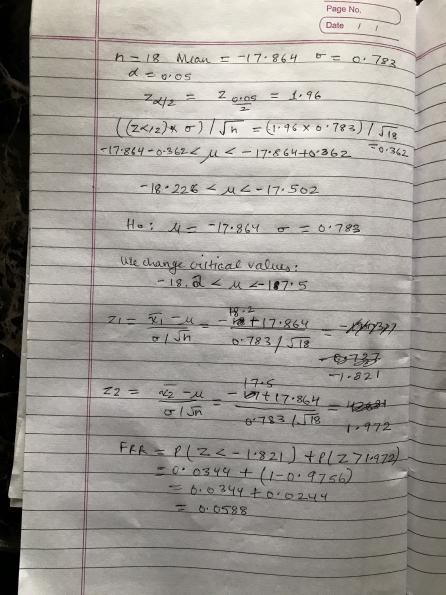 Page No.
Date / /
n = 18 Mean = -17.864 σ = 0.783
α = 0.05
Zα/2 = Z 0.05/2 = 1.96
((Zα/2)* σ)/√n = (1.96 x 0.783)/√18 = 0.362
-17.864-0.362 < μ < -17.864+0.362
-18.226 < μ < -17.502
Ho: μ = -17.864 σ = 0.783
We change critical values:
-18.2 < μ < -17.5
Z1 = (x̄1 - μ)/(σ/√n) = (-18.2 + 17.864)/(0.783/√18) = -1.821
Z2 = (x̄2 - μ)/(σ/√n) = (-17.5 + 17.864)/(0.783/√18) = 1.972
FRR = P(Z < -1.821) + P(Z > 1.972)
= 0.0344 + (1-0.9756)
= 0.0344 + 0.0244
= 0.0588